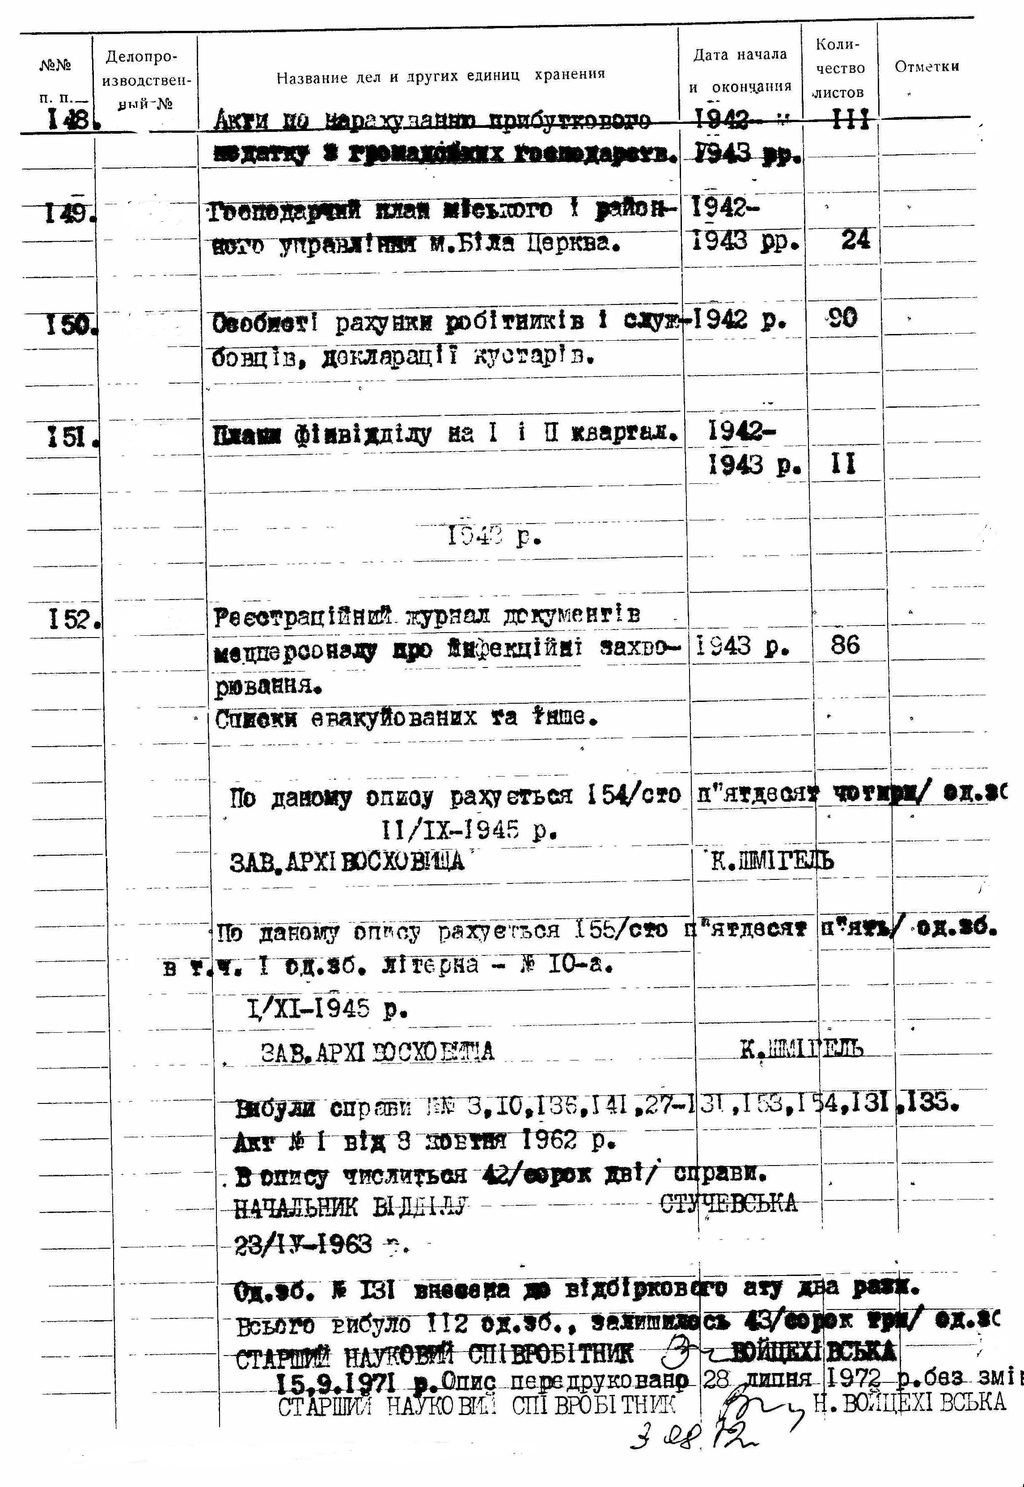 №№ п. п. Делопроизводственный № Название дел и других единиц хранения Дата начала и окончания Количество листов Отметки
I48. Акти по нарахуванню прибуткового I942- и III
податку з громадських господарств. I943 рр.
I49. Господарчий план міського і район- I942-
ного управління м.Біла Церква. I943 рр. 24
I50. Особисті рахунки робітників і служ- I942 р. 90
бовців, декларації кустарів.
I51. Плани фінвідділу на I і II квартал. I942-
I943 р. II
I943 р.
I52. Реєстраційний журнал документів
медперсоналу про інфекційні захво- I943 р. 86
рювання.
Списки евакуйованих та інше.
По даному опису рахується I54/сто п"ятдесят чотири/ од.зб
II/IX-I945 р.
ЗАВ.АРХІВОСХОВИЩА К.ШМІГЕЛЬ
По даному опису рахується I55/сто п"ятдесят п"ять/ од.зб.
в т.ч. I од.зб. літерна - № IO-а.
I/XI-I945 р.
ЗАВ.АРХІВОСХОВИЩА К.ШМІГЕЛЬ
Вибули справи №№ 3,IO,I36,I41,27-I3I,I53,I54,I3I,I33.
Акт № I від 3 жовтня I962 р.
В опису числиться 42/сорок дві/ справи.
НАЧАЛЬНИК ВІДДІЛУ СТУЧЕВСЬКА
23/IУ-I963 р.
Од.зб. № I3I внесена до відбіркового ату два рази.
Всього вибуло II2 од.зб., залишилось 43/сорок три/ од.зб
СТАРШИЙ НАУКОВИЙ СПІВРОБІТНИК ВОЙЦЕХІВСЬКА
I5.9.I97I р.Опис передруковано 28 липня I972 р.без змін
СТАРШИЙ НАУКОВИЙ СПІВРОБІТНИК Н.ВОЙЦЕХІВСЬКА
3.08.72